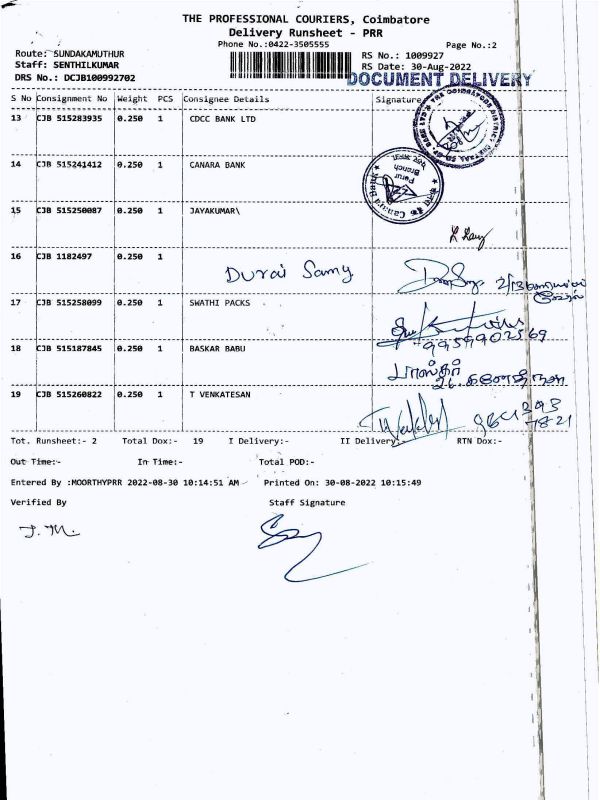 THE PROFESSIONAL COURIERS, Coimbatore
Delivery Runsheet - PRR
Phone No.:0422-3505555
Page No.:2
Route: SUNDAKAMUTHUR
RS No.: 1009927
Staff: SENTHILKUMAR
RS Date: 30-Aug-2022
DRS No.: DCJB100992702
DOCUMENT DELIVERY
S No Consignment No Weight PCS Consignee Details Signature
13 CJB 515283935 0.250 1 CDCC BANK LTD
14 CJB 515241412 0.250 1 CANARA BANK
Perur
Branch
Canara
15 CJB 515250087 0.250 1 JAYAKUMAR\
16 CJB 1182497 0.000 1
Durai Samy
17 CJB 515258099 0.250 1 SWATHI PACKS
9959902569
18 CJB 515187845 0.250 1 BASKAR BABU
பாஸ்கர்
19 CJB 515260822 0.250 1 T VENKATESAN
Tot. Runsheet:- 2 Total Dox:- 19 I Delivery:- II Delivery:- RTN Dox:-
Out Time:- In Time:- Total POD:-
Entered By :MOORTHYPRR 2022-08-30 10:14:51 AM Printed On: 30-08-2022 10:15:49
Verified By Staff Signature
J. M.